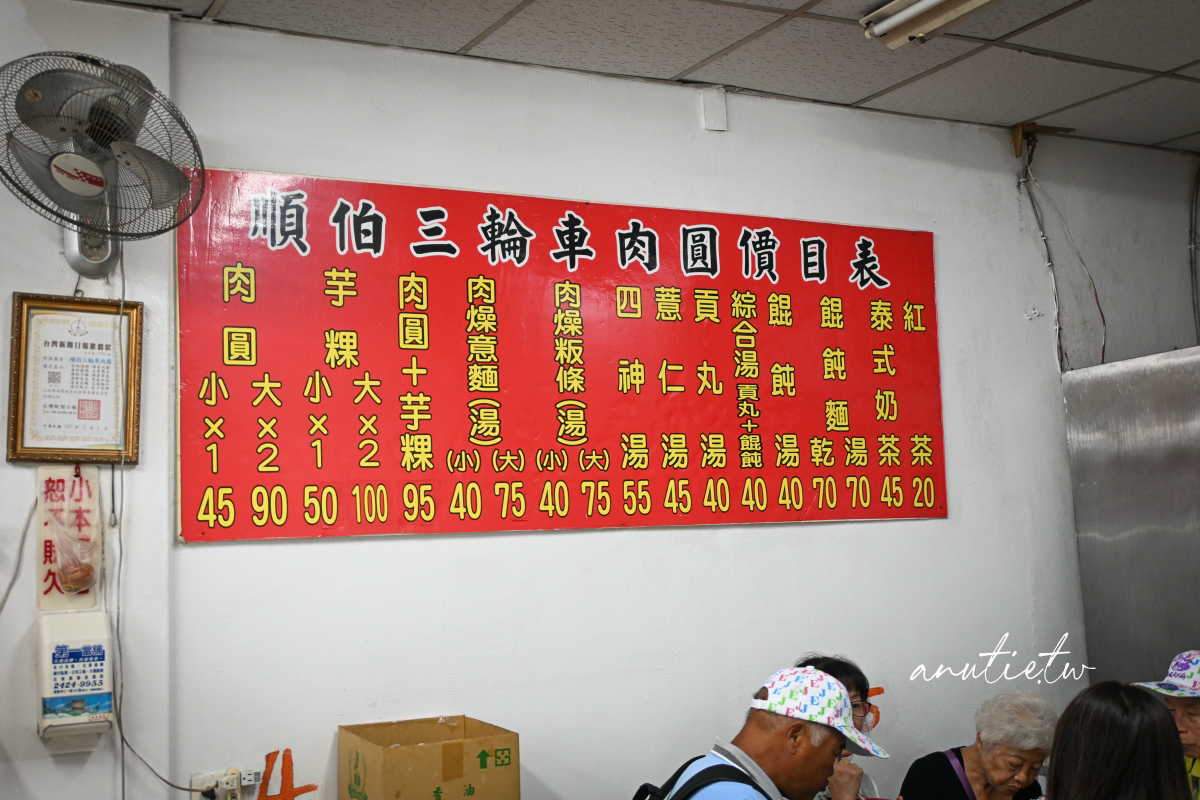 順伯三輪車肉圓價目表
肉圓 小×1 45
大×2 90
芋粿 小×1 50
大×2 100
肉圓+芋粿 95
肉燥意麵(湯) (小) 40
(大) 75
肉燥粄條(湯) (小) 40
(大) 75
四神湯 55
薏仁湯 45
貢丸湯 40
綜合湯 貢丸+餛飩 40
餛飩湯 40
餛飩麵 乾 70
湯 70
泰式奶茶 45
紅茶 20
台灣新聞日報徵選狀
小本
恕不賒欠
第一當舖
2424-9955
香油
4
anutie.tw